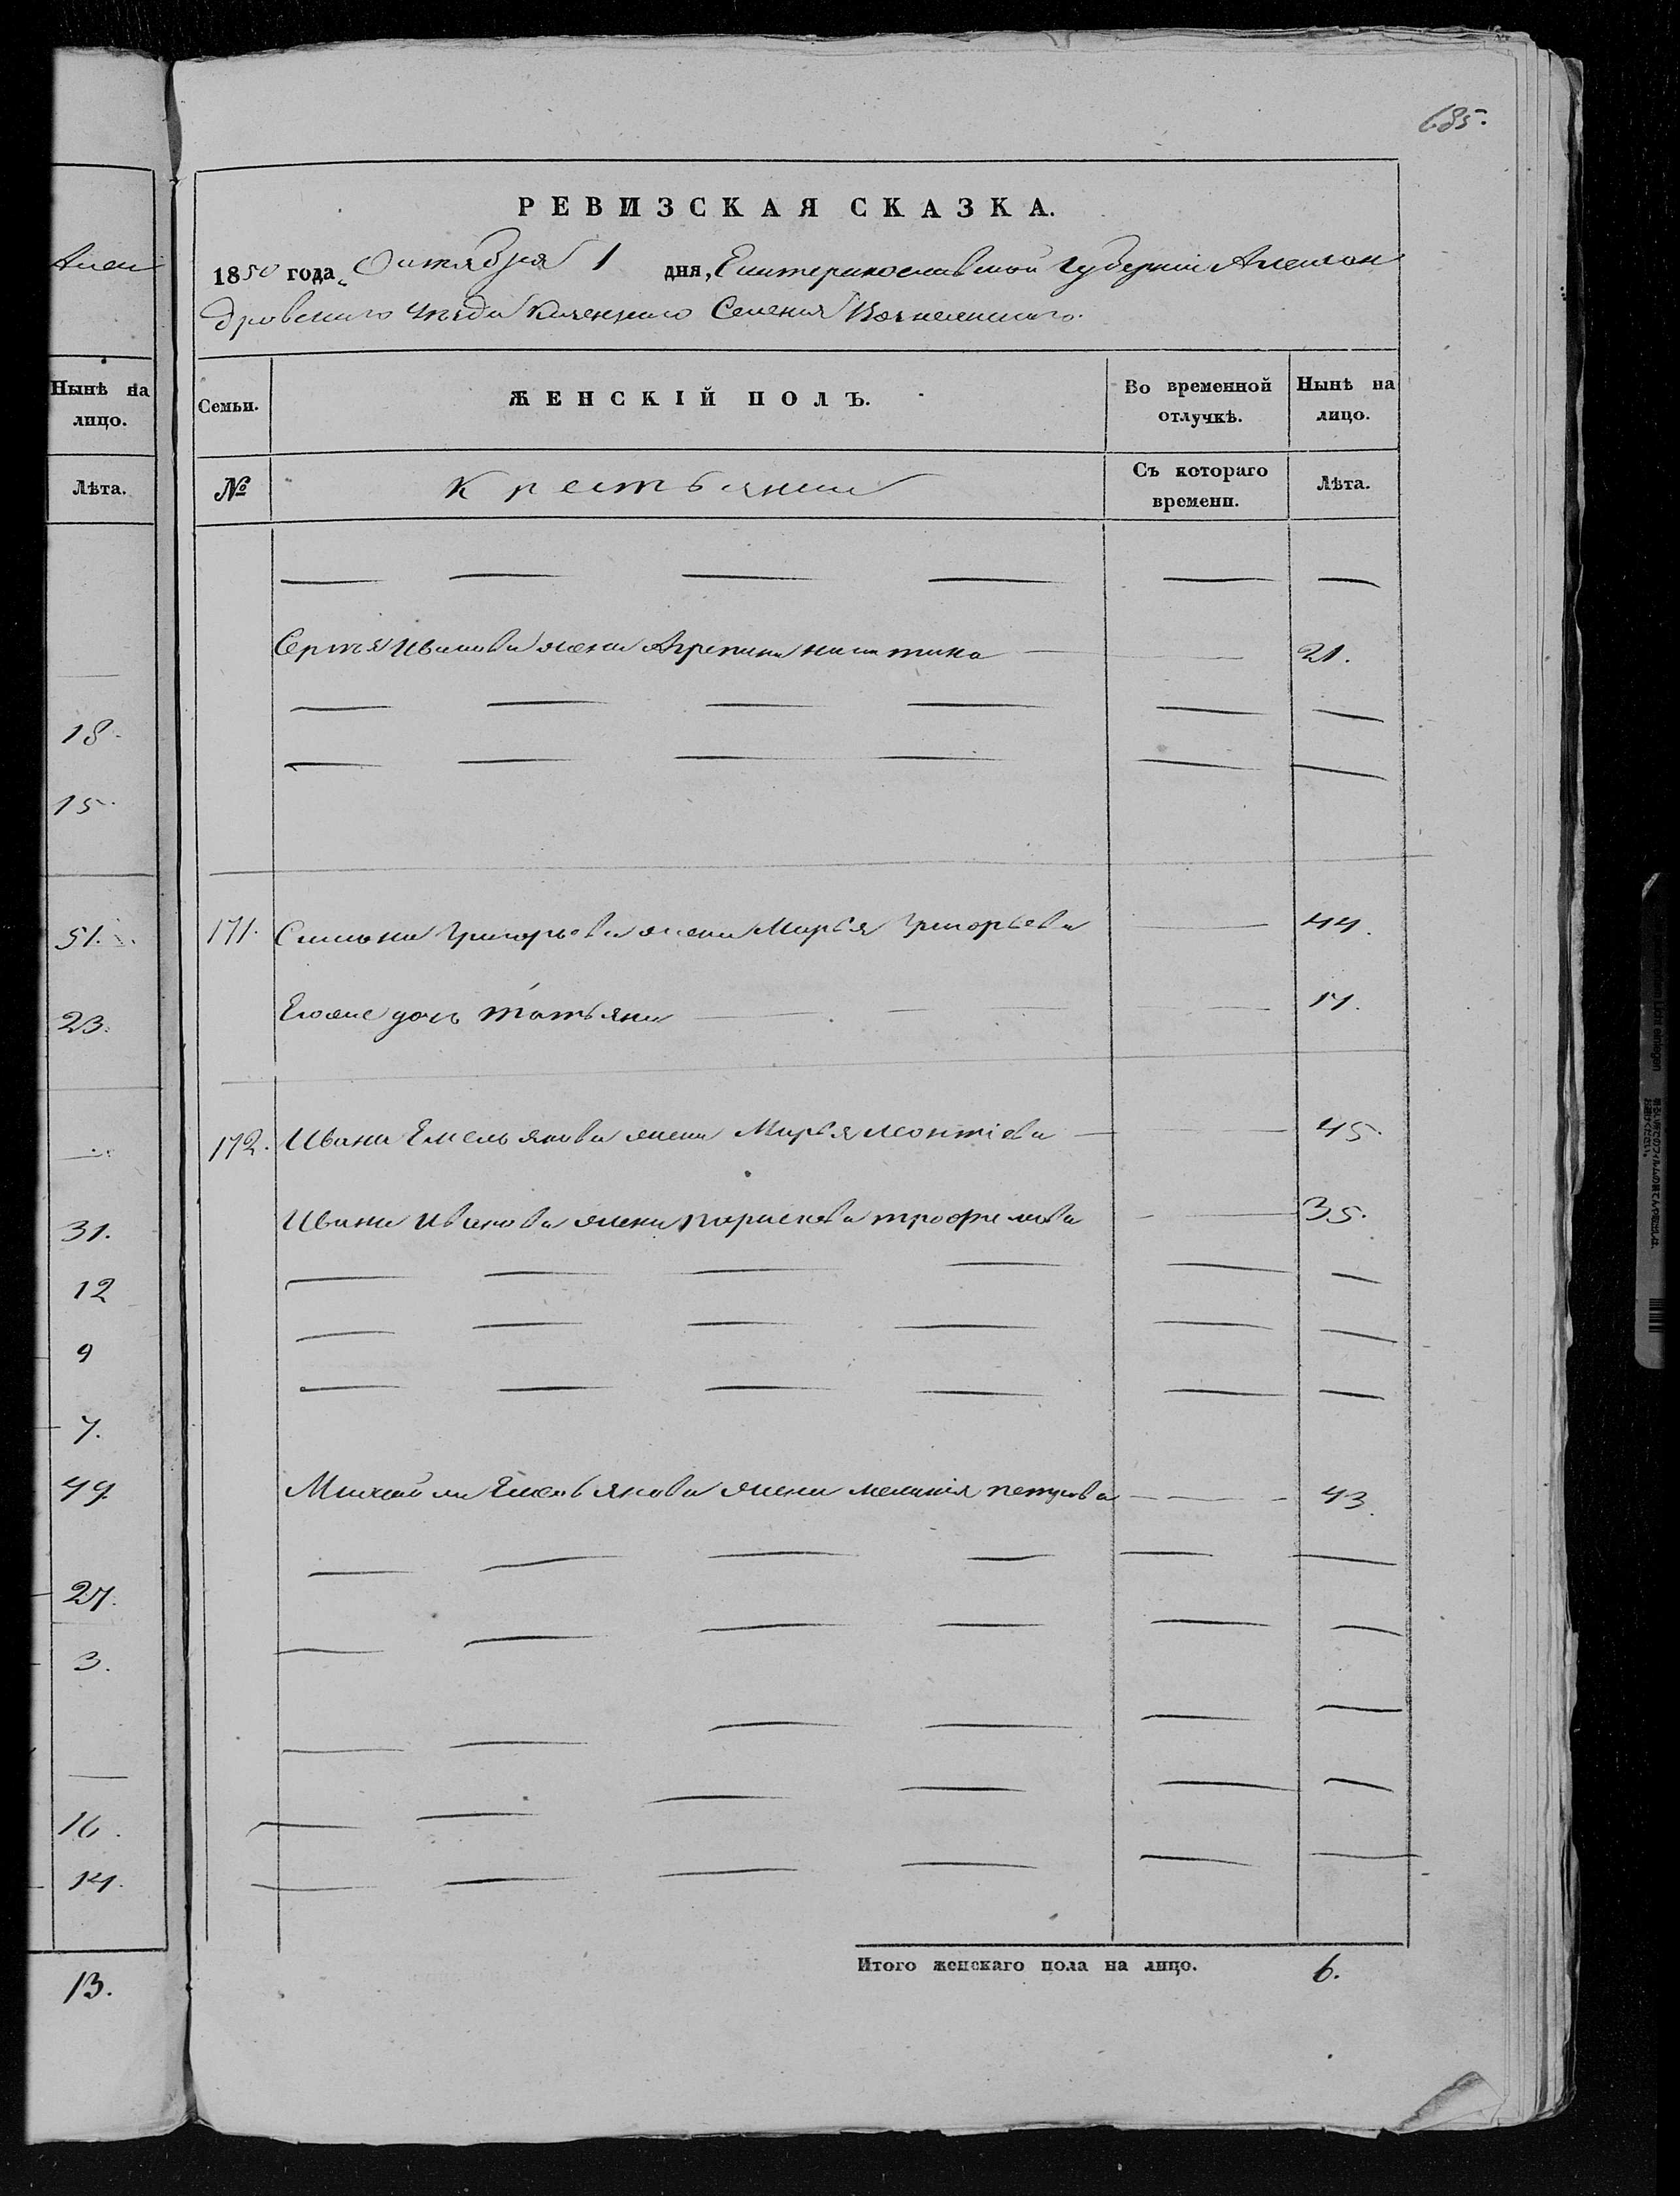 685.
РЕВИЗСКАЯ СКАЗКА.
1850 года Октября 1 дня, Екатеринославской губернии Алексан
дровского уѣзда Казеннаго Селения Вознесенскаго.
Алек
Нынѣ на
лицо.
Лѣта.
18.
15.
51.
23.
31.
12
9
7.
49
27.
3.
16.
14.
13.
Семьи.
ЖЕНСКІЙ ПОЛЪ.
Во временной
отлучкѣ.
Нынѣ на
лицо.
№
Крестьянки
Съ котораго
времени.
Лѣта.
Сергѣя Иванова жена Агрепина никитина 21.
171. Симона Григорьева жена Марья Григорьева 44.
Егоже дочь татьяна 17.
172. Ивана Емельянова жена Марья леонтіева 45.
Ивана Иванова жена параскева трофимова 35.
Михайла Емельянова жена меланія петрова 43.
Итого женскаго пола на лицо. 6.